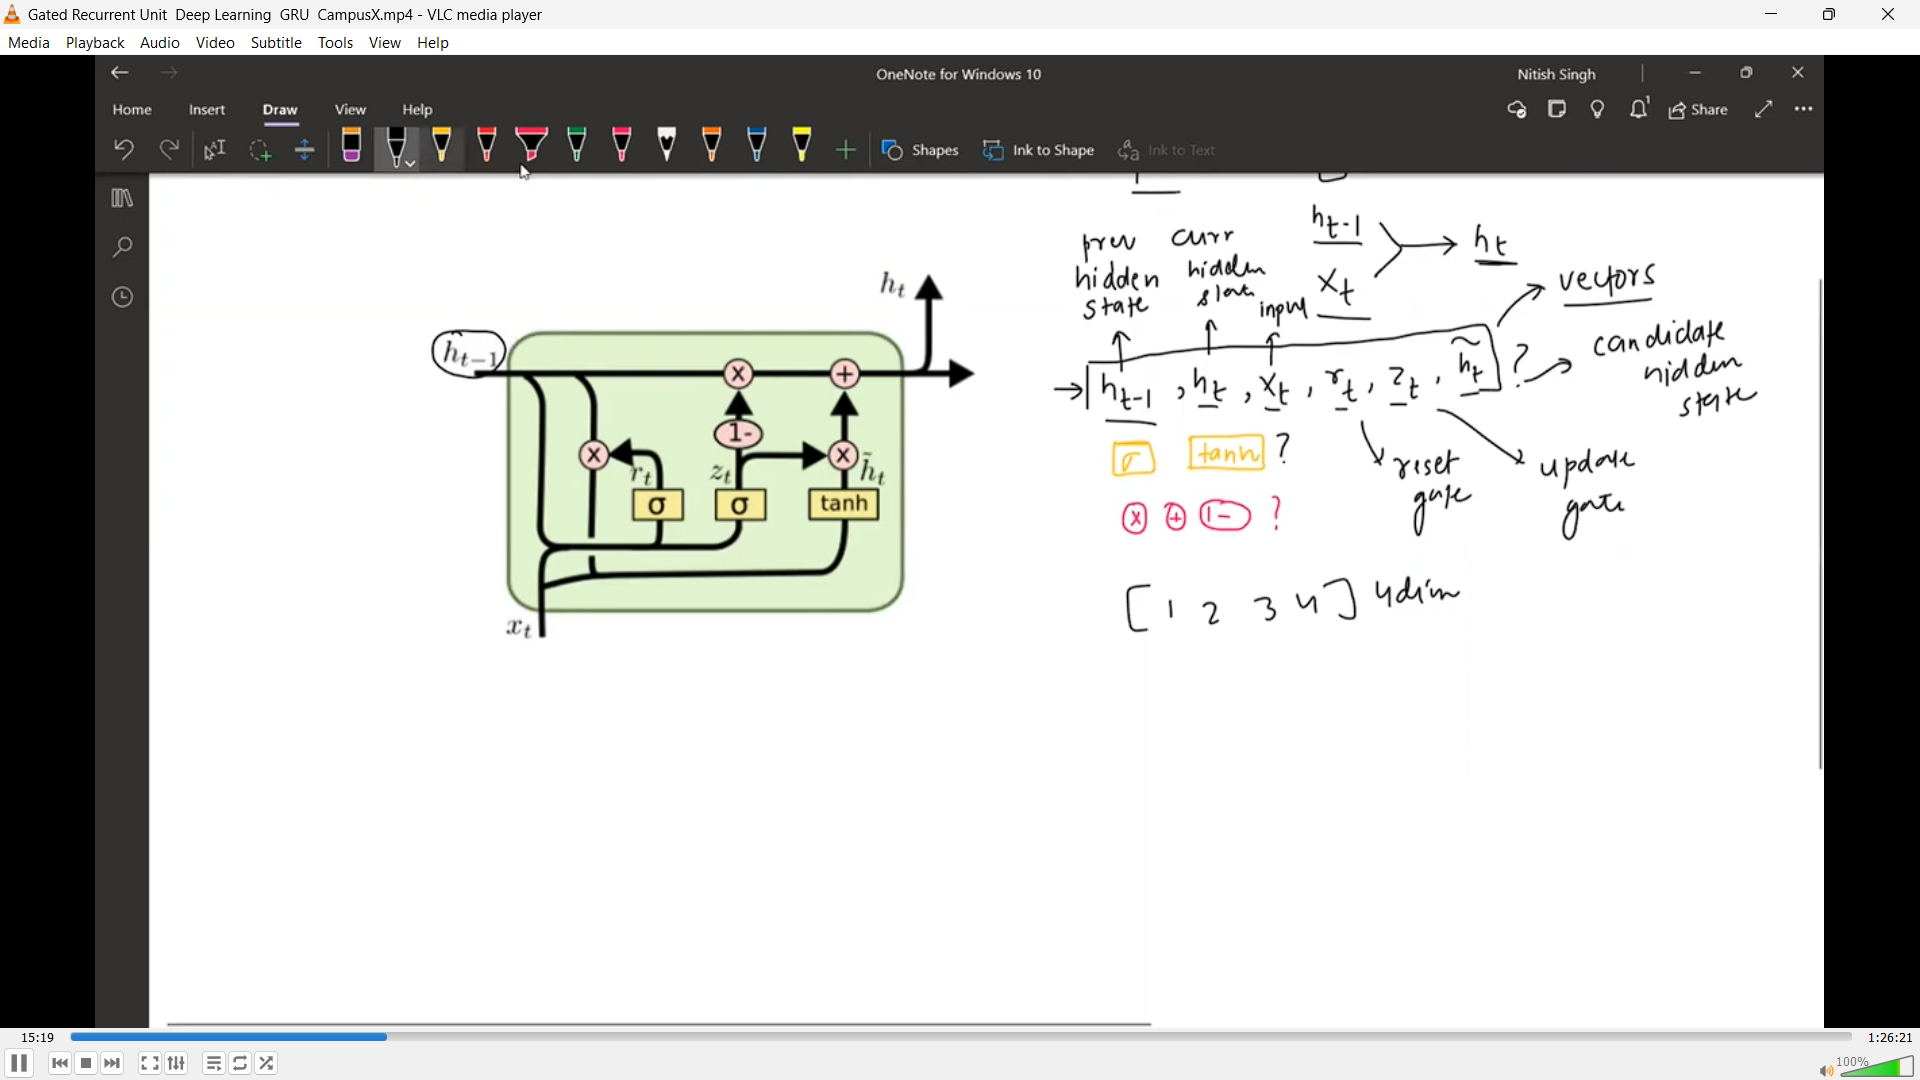 Gated Recurrent Unit  Deep Learning  GRU  CampusX.mp4 - VLC media player
Media Playback Audio Video Subtitle Tools View Help
OneNote for Windows 10
Nitish Singh
Home Insert Draw View Help
Share
Shapes Ink to Shape Ink to Text
h_t
h_{t-1}
x +
1-
x r_t z_t x h̃_t
σ σ tanh
x_t
h_{t-1} → h_t
x_t
prev hidden state
curr hidden state
input
vectors
→ h_{t-1}, h_t, x_t, r_t, z_t, h̃_t ?
candidate hidden state
σ tanh ?
reset gate
update gate
x + 1- ?
[1 2 3 4] 4dim
15:19
1:26:21
100%